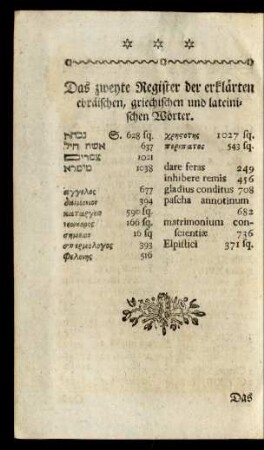 Das zweyte Register der erklärten
ebräischen, griechischen und lateini-
schen Wörter.
S. 628 sq.
אשת חיל 637
1021
1038
αγγελος 677
δαιμονιον 394
καταργειν 590 sq.
νεωκορος 166 sq.
σημειον 16 sq
σπερμολογος 393
φελονης 516
χρηστος 1027 sq.
περιπατος 543 sq.
dare feras 249
inhibere remis 456
gladius conditus 708
pascha annotinum
682
matrimonium con-
scientiæ 736
Elpistici 371 sq.
Das